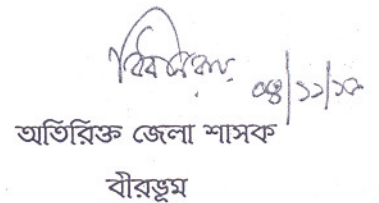 ০৪/১১/১০
অতিরিক্ত জেলা শাসক
বীরভূম